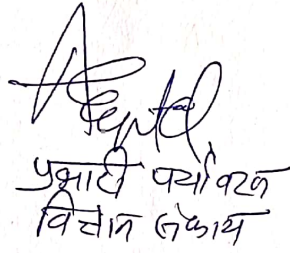 प्रभारी पर्यावरण
विज्ञान संकाय